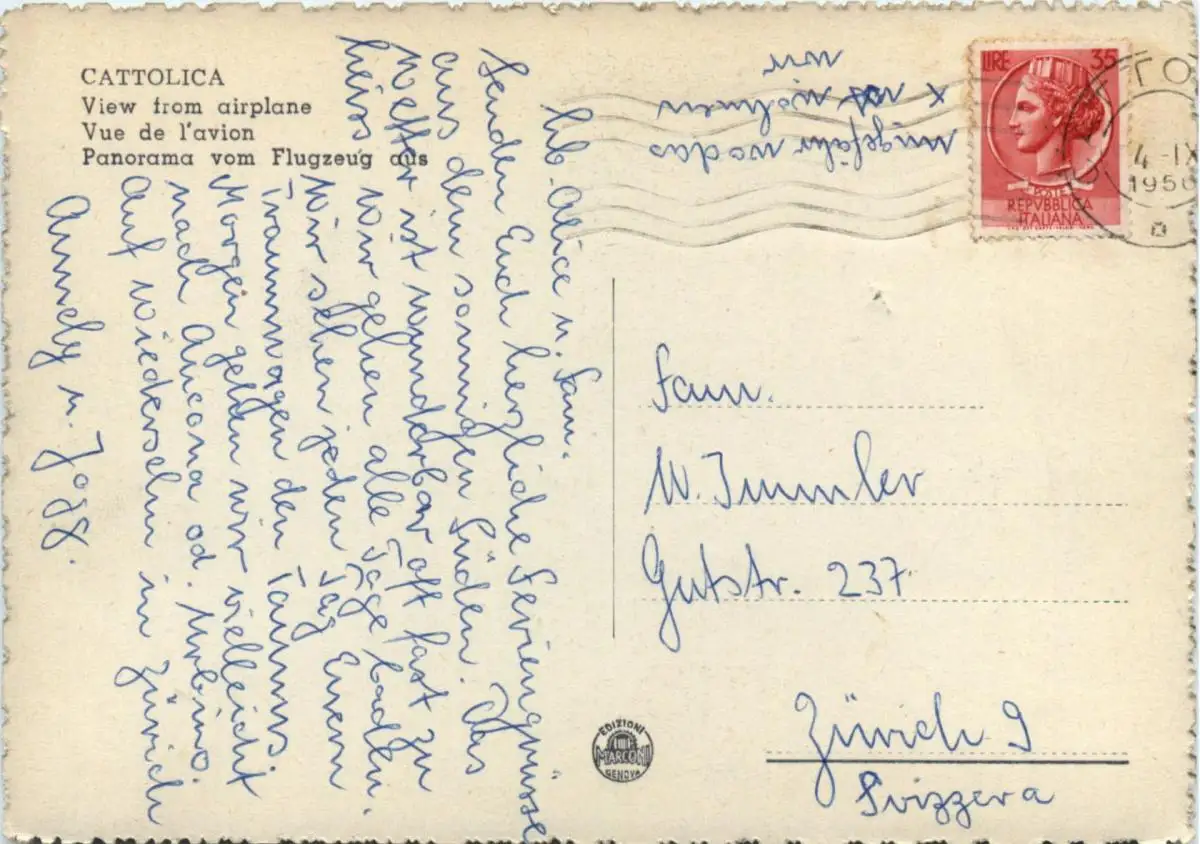 CATTOLICA
View from airplane
Vue de l'avion
Panorama vom Flugzeug aus
lb. Alice u. Fam.
Senden Euch herzliche Feriengrüsse
aus dem sonnigen Süden. Das
Wetter ist wunderbar oft fast zu
heiss
Wir gehen alle Tage baden.
Wir sehen jeden Tag Euern
Traumwagen den Taunus.
Morgen gehen wir vielleicht
nach Ancona od. Urbino.
Auf Wiedersehn in Zürich
Annely u. Jogg.
ungefähr wo das
x ist wohnen
wir
LIRE 35
POSTE
REPVBBLICA
ITALIANA
4-IX
1956
Fam.
W. Immler
Gutstr. 237.
Zürich 9
Svizzera
EDIZIONI
MARCONI
GENOVA